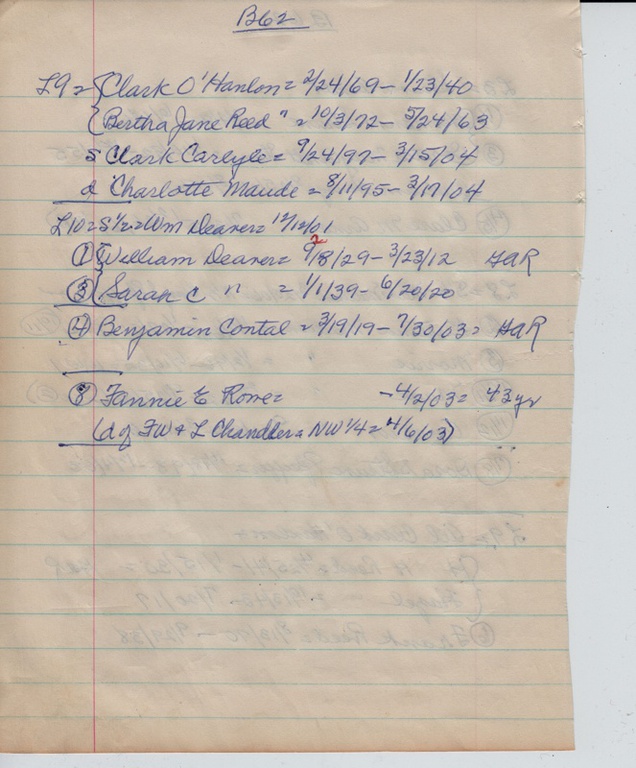 B62
L9 = {Clark O'Hanlon = 2/24/69 - 1/23/40
{Bertha Jane Reed " = 10/3/72 - 5/24/63
s Clark Carlyle = 9/24/97 - 3/15/04
d Charlotte Maude = 8/11/95 - 3/17/04
L10 = S 1/2 = Wm Deaver = 12/12/01
2
① {William Deaver = 9/8/29 - 3/23/12 GAR
③ {Sarah C " = 1/1/39 - 6/20/20
④ Benjamin Contal = 3/19/19 - 7/30/03 = GAR
⑧ Fannie E Rowe = - 4/2/03 = 43 yr
(d of FW & L Chandler = NW 1/4 = 4/6/03)